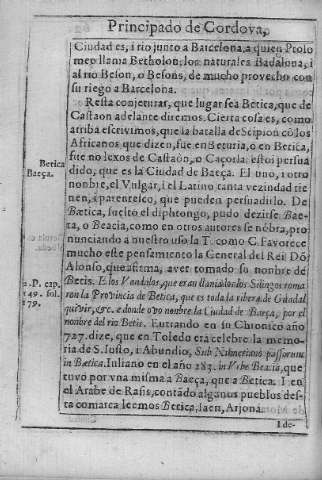 Principado de Cordova,
Ciudad es, i rio junto a Barcelona, a quien Ptolo
meo llama Betholon; los naturales Badalona, i
al rio Beson, o Besons, de mucho provecho con
su riego a Barcelona.
Resta conjeturar, que lugar sea Betica, que de
Castaon adelante diremos. Cierta cosa es, como
arriba escrivimos, que la batalla de Scipion cõ los
Africanos que dizen, fue en Beturia, o en Betica,
fue no lexos de Castaõn, o Caçorla: estoi persua
dido, que es la Ciudad de Baeça. El uno, i otro
nombre, el Vulgar, i el Latino tanta vezindad tie
nen, i parentesco, que pueden persuadirlo. De
Bætica, suelto el diphtongo, pudo dezirse Bae-
ta, o Beacia, como en otros autores se nõbra, pro
nunciando a nuestro uso la T. como C. Favorece
mucho este pensamiento la General del Rei Dõ
Alonso, que afirma, aver tomado su nombre de
Betis. E los Vandalos, que eran llamados los Silingos toma
ron la Provincia de Betica, que es toda la ribera de Guadal
quivir, &c. e donde ovo nombre la Ciudad de Baeça, por el
nombre del rio Betis. Eutrando en su Chronico año
727. dize, que en Toledo era celebre la memo
ria de S. Iusto, i Abundio, Sub Numeriano passorum
in Bætica. Iuliano en el año 283. in Vrbe Beatia, que
tuvo por una misma a Baeça, que a Betica. I en
el Arabe de Rasis, contãdo algunos pueblos des-
ta comarca leemos Betica, Iaen, Arjona.
Ide-
Betica
Baeça.
2. P. cap.
149. fol.
179.